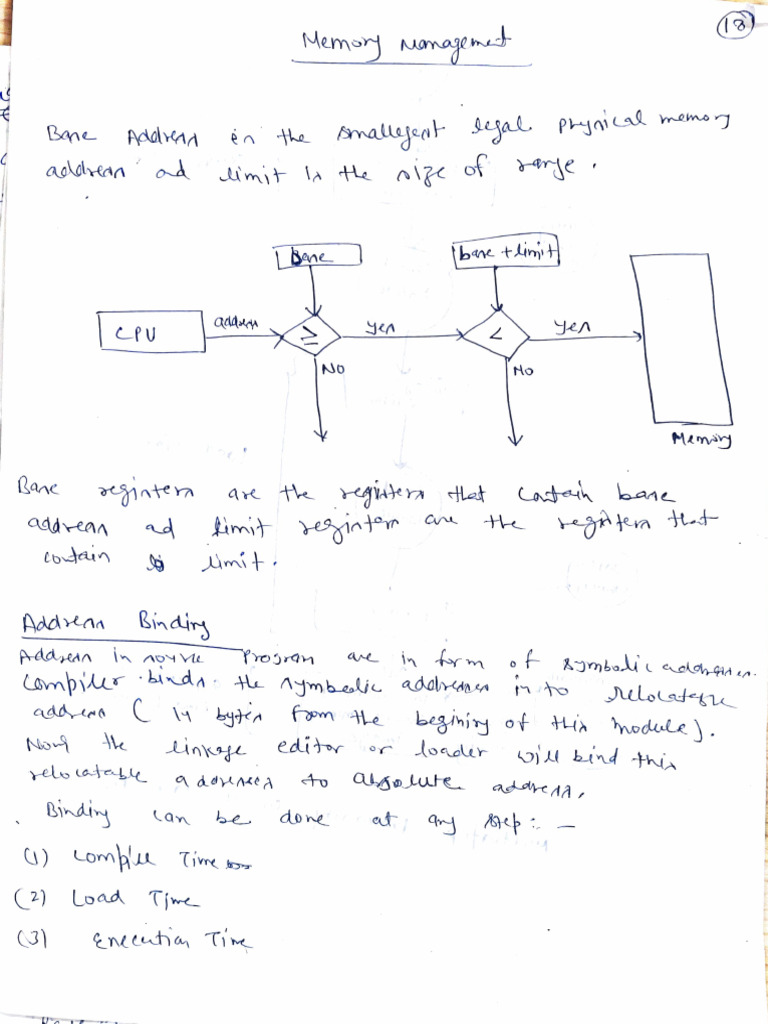 18
Memory Management
Base Address is the smallest legal physical memory
address ad limit is the size of range.
Base
base + limit
CPU
address
≥
yes
<
yes
NO
NO
Memory
Base registers are the registers that contain base
address ad limit registers are the registers that
contain limit.
Address Binding
Address in source program are in form of symbolic addresses.
Compiler binds the symbolic addresses in to relocatable
address ( 14 bytes from the begining of this module).
Now the linkage editor or loader will bind this
relocatable addresses to absolute address.
Binding can be done at any step: -
(1) Compile Time
(2) Load Time
(3) Execution Time